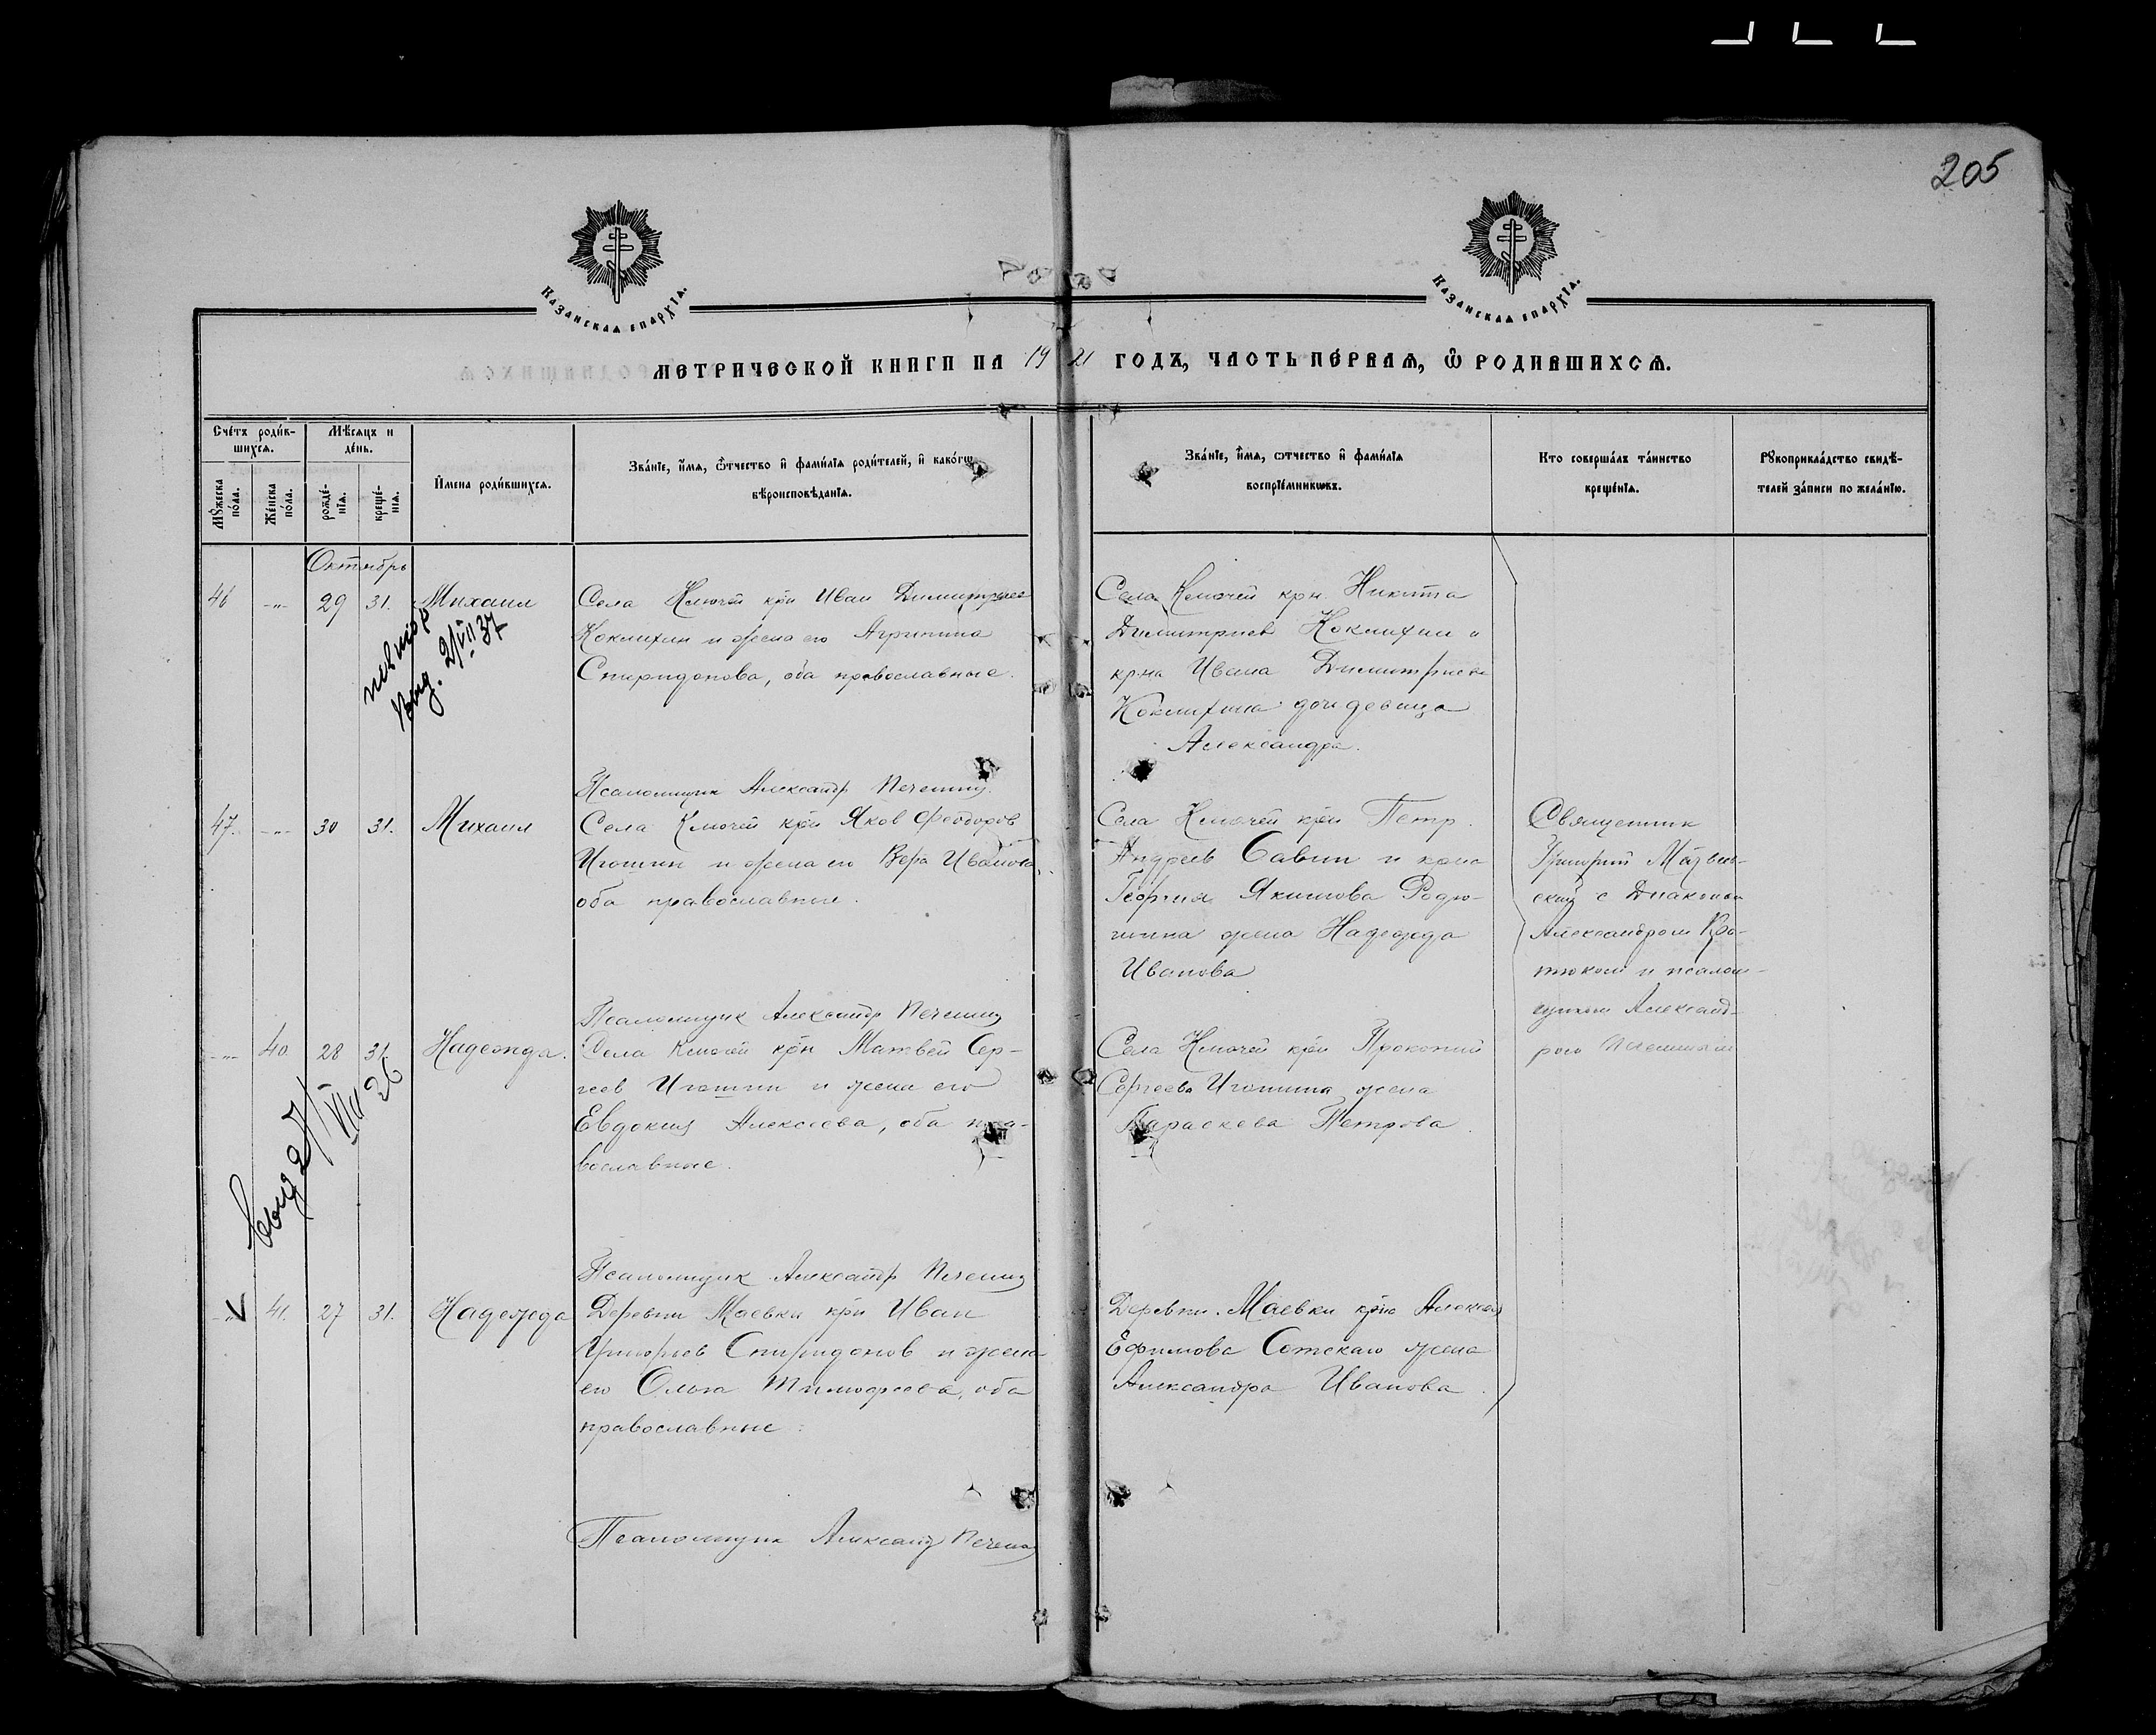 205
Казанская епархїя.
Казанская епархїя.
Метрической книги на 1921 годъ, часть пе́рвая, ѡ҆ родившихся.
Сче́тъ роди́в-
шихся.
Мѣсяцъ и
де́нь.
Мꙋ́жеска
по́ла.
Же́нска
по́ла.
рожде́-
нїя.
креще́-
нїя.
И҆мена роди́вшихся.
Зва́нїе, и҆́мя, ѻ҆́тчество и҆ фами́лїя роди́телей, и҆ како́гѡ
вѣроисповѣ́данїя.
Зва́нїе, и҆́мя, ѻтчество и҆ фами́лїя
воспрїе́мникѡвъ.
Кто совершáлъ та́инство
креще́нїя.
Рꙋкоприкла́дство свидѣ́-
телей за́писи по жела́нїю.
Октябрь
46 -"- 29 31. Михаил
Села Ключей крн Иван Димитриев
Кокмихин и жена его Агрипина
Спиридонова, оба православные.
Села Ключей крн. Никита
Димитриев Кокмихин и
кр-на Ивана Димитриева
Кокмихина доч девица
Александра.
повтор
выд. 2/VII 37
Псаломщик Александр Печенин
47. -"- 30 31. Михаил
Села Ключей крн Яков Феодоров
Игошин и жена его Вера Иванова,
оба православные.
Села Ключей крн Петр
Андреев Савин и крна
Георгия Якимова Родю-
шина жена Надежда
Иванова
Священник
Григорий
ский с Диаконом
Александром Кро-
тюком и псалом-
щиком Александ-
ром Печениным
Псаломщик Александр Печенин
-"- 40. 28 31. Надежда.
Села Ключей крн Матвей Сер-
геев Игошин и жена его
Евдокия Алексеева, оба пра-
вославные.
Села Ключей крн Прокопия
Сергеева Игошина жена
Параскева Петрова.
выд 27/VIII 26
Псаломщик Александр Печенин
-"- V 41. 27 31. Надежда
Деревни Маевки крн Иван
Григорьев Спиридонов и жена
его Ольга Тимофеева, оба
православные.
Деревни Маевки крна Алексея
Ефимова Сотскаго жена
Александра Иванова.
Псаломщик Александр Печенин